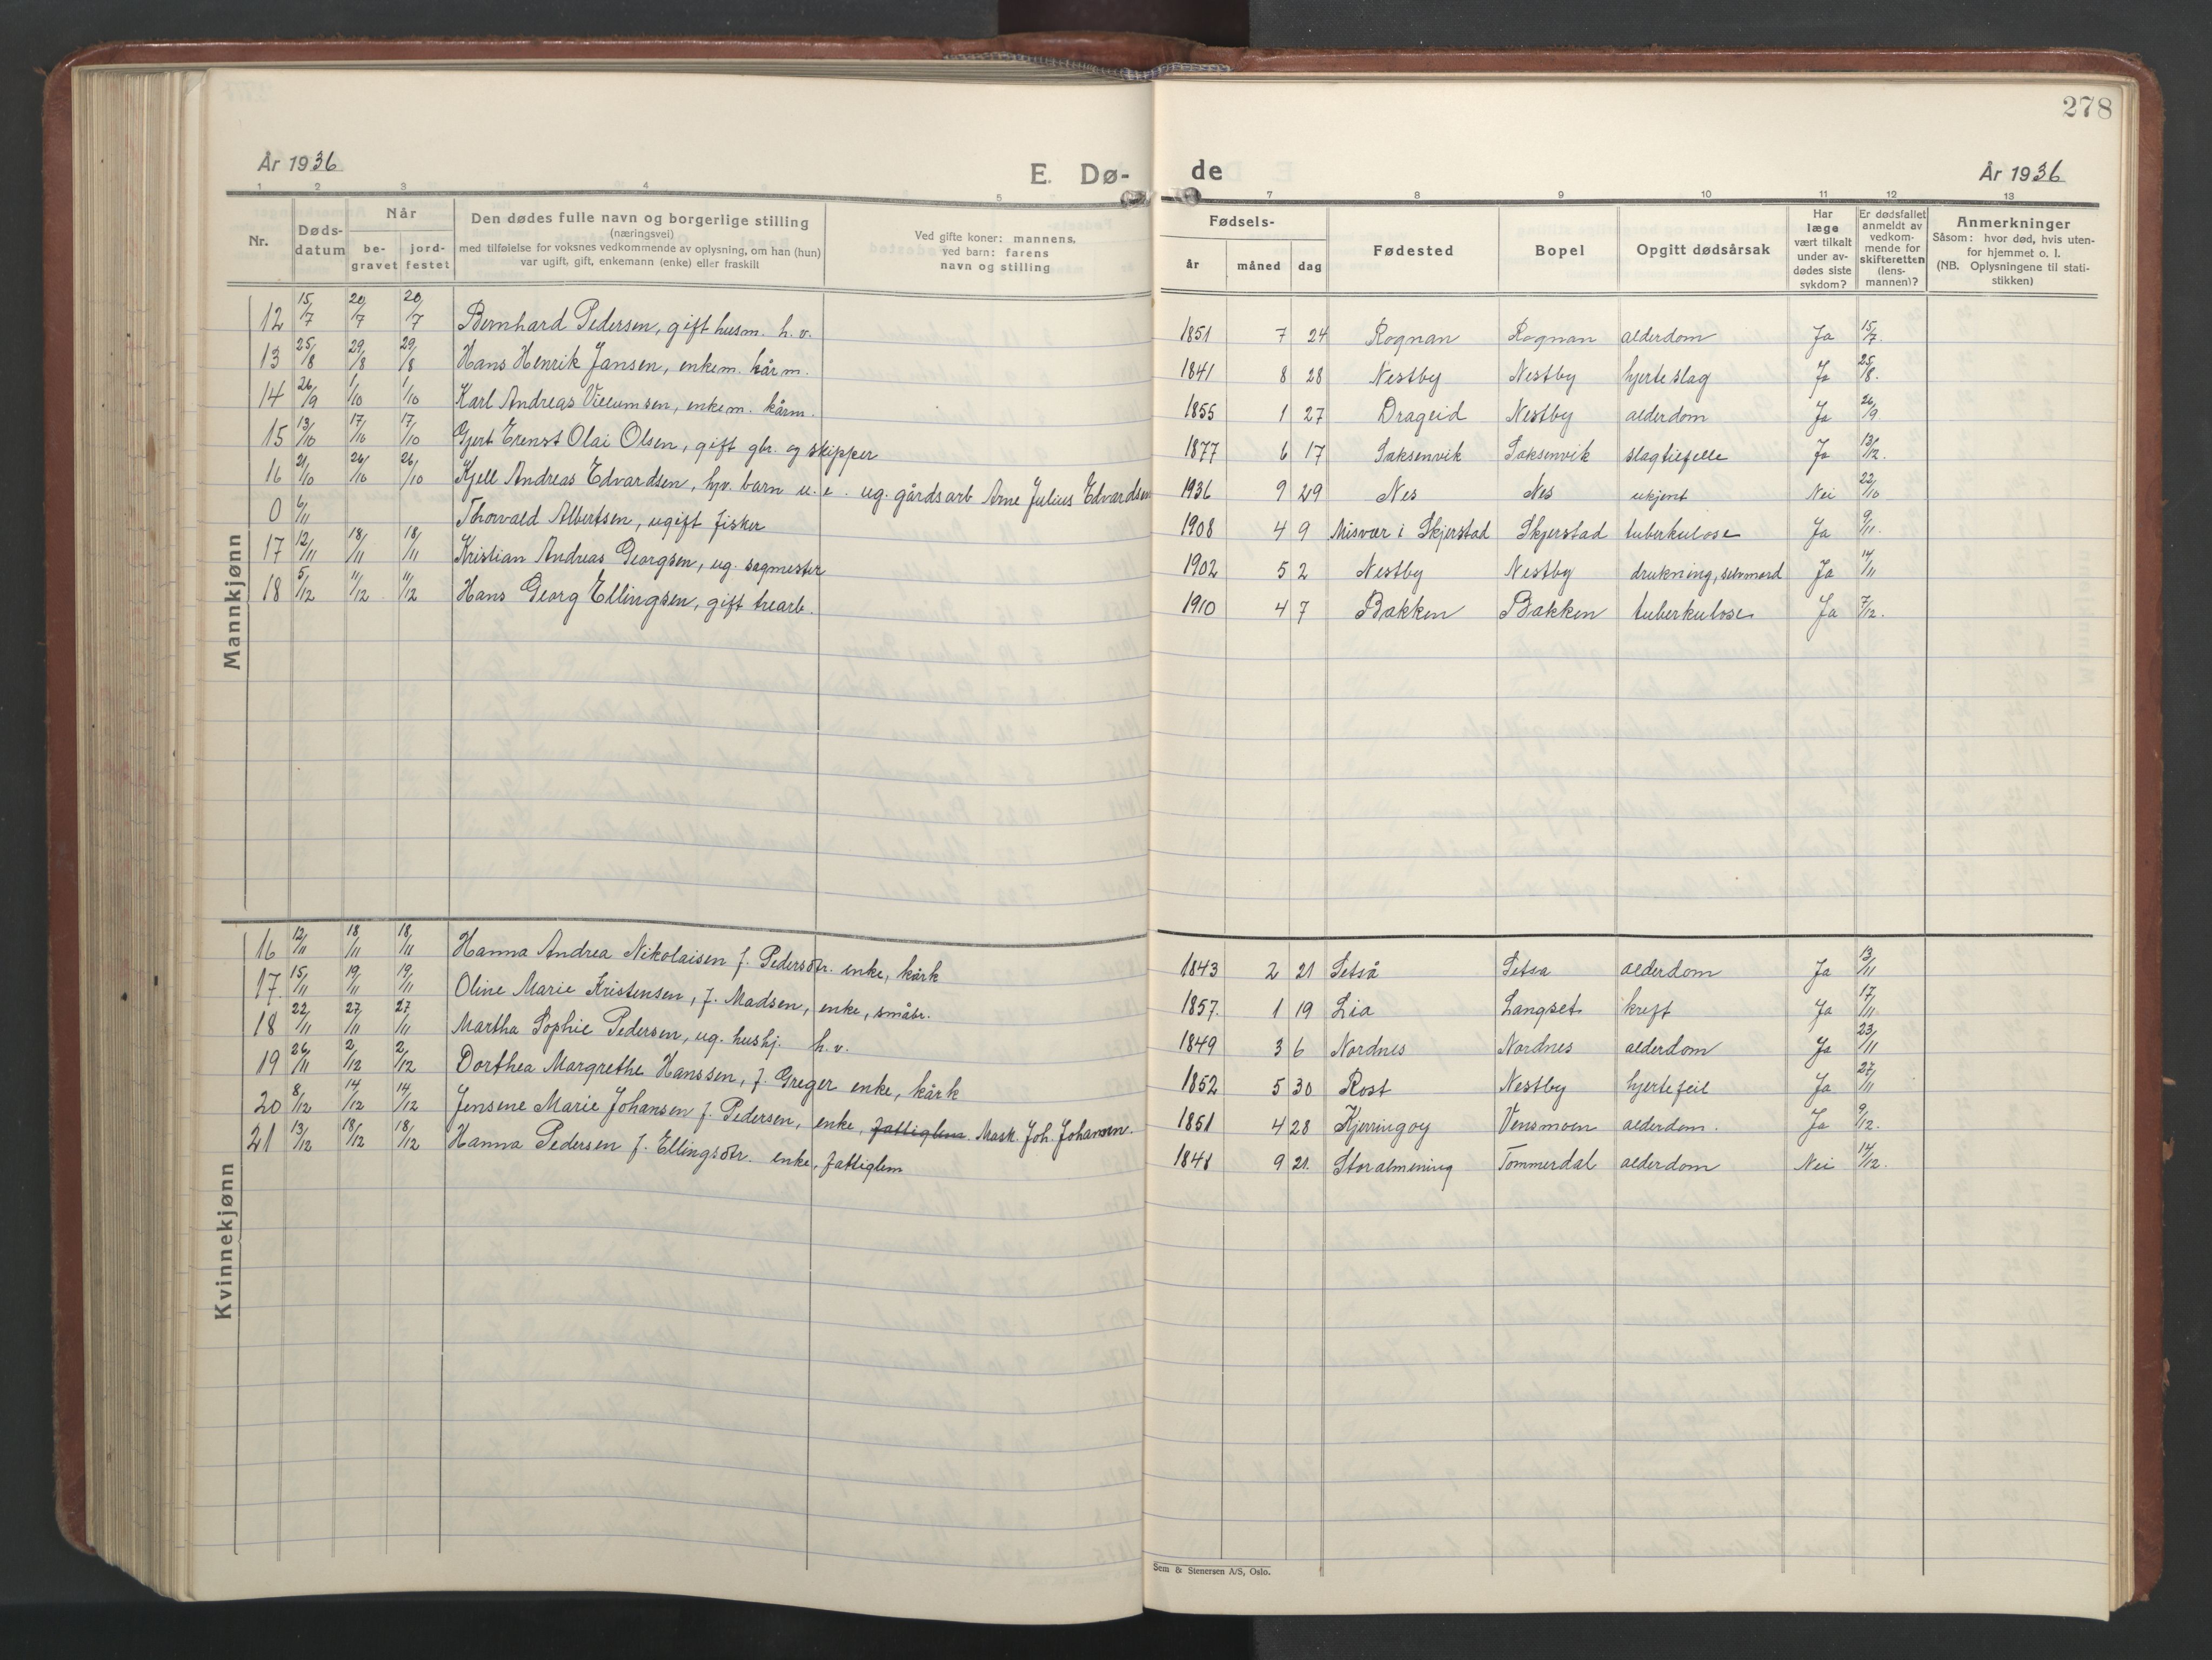 278
År 1936
E. Dø-
de
År 1936
1 2 3 4 5 7 8 9 10 11 12 13
Nr.
Døds-
datum
Når
be-
gravet
jord-
festet
Den dødes fulle navn og borgerlige stilling
(næringsvei)
med tilføielse for voksnes vedkommende av oplysning, om han (hun)
var ugift, gift, enkemann (enke) eller fraskilt
Ved gifte koner: mannens,
ved barn: farens
navn og stilling
Fødsels-
år måned dag
Fødested
Bopel
Opgitt dødsårsak
Har
læge
vært tilkalt
under av-
dødes siste
sykdom?
Er dødsfallet
anmeldt av
vedkom-
mende for
skifteretten
(lens-
mannen)?
Anmerkninger
Såsom: hvor død, hvis uten-
for hjemmet o. l.
(NB. Oplysningene til stati-
stikken)
Mannkjønn
12 15/7 20/7 20/7 Bernhard Pedersen, gift husm. h. v. 1851 7 24 Rognan Rognan alderdom Ja 15/7.
13 25/8 29/8 29/8 Hans Henrik Jansen, enkem. kårm. 1841 8 28 Nestby Nestby hjerteslag Ja 25/8.
14 26/9 1/10 1/10 Karl Andreas Villumsen, enkem. kårm. 1855 1 27 Drageid Nestby alderdom Ja 26/9
15 13/10 17/10 17/10 Gjert Ernst Olai Olsen, gift gbr. og skipper 1877 6 17 Saksenvik Saksenvik slagtilfelle Ja 13/12.
16 21/10 26/10 26/10 Kjell Andreas Edvardsen, hjv. barn u. e. ug. gårdsarb Arne Julius Edvardsen 1936 9 29 Nes Nes ukjent Nei 22/10
0 6/11 Thorvald Albertsen, ugift fisker 1908 4 9 Misvær i Skjerstad Skjerstad tuberkulose Ja 9/11.
17 12/11 18/11 18/11 Kristian Andreas Georgsen, ug. sagmester 1902 5 2 Nestby Nestby drukning, selvmord Ja 14/11
18 5/12 11/12 11/12 Hans Georg Ellingsen, gift trearb. 1910 4 7 Bakken Bakken tuberkulose Ja 7/12.
Kvinnekjønn
16 12/11 18/11 18/11 Hanna Andrea Nikolaisen f. Pedersdtr. enke, kårk 1843 2 21 Setså Setsa alderdom Ja 13/11
17. 15/11 19/11 19/11 Oline Marie Kristensen, f. Madsen, enke, småbr. 1857. 1 19 Lia Langset kreft Ja 17/11.
18 22/11 27/11 27/11 Martha Sophie Pedersen, ug. hushj. h. v. 1849 3 6 Nordnes Nordnes alderdom Ja 23/11
19 26/11 2/12 2/12 Dorthea Margrethe Hanssen, f. Greger enke, kårk 1852 5 30 Rost Nestby hjertefeil Ja 27/11
20 8/12 14/12 14/12 Jensene Marie Johansen f. Pedersen, enke, fattiglem. Mask. Joh. Johansen. 1851 4 28 Kjerringøy Vensmoen alderdom. Ja 9/12.
21 13/12 18/12 18/12 Hanna Pedersen f. Ellingsdtr. enke, fattiglem 1848 9 21. Storalmening Tømmerdal alderdom Nei 14/12.
Sem & Stenersen A/S, Oslo.